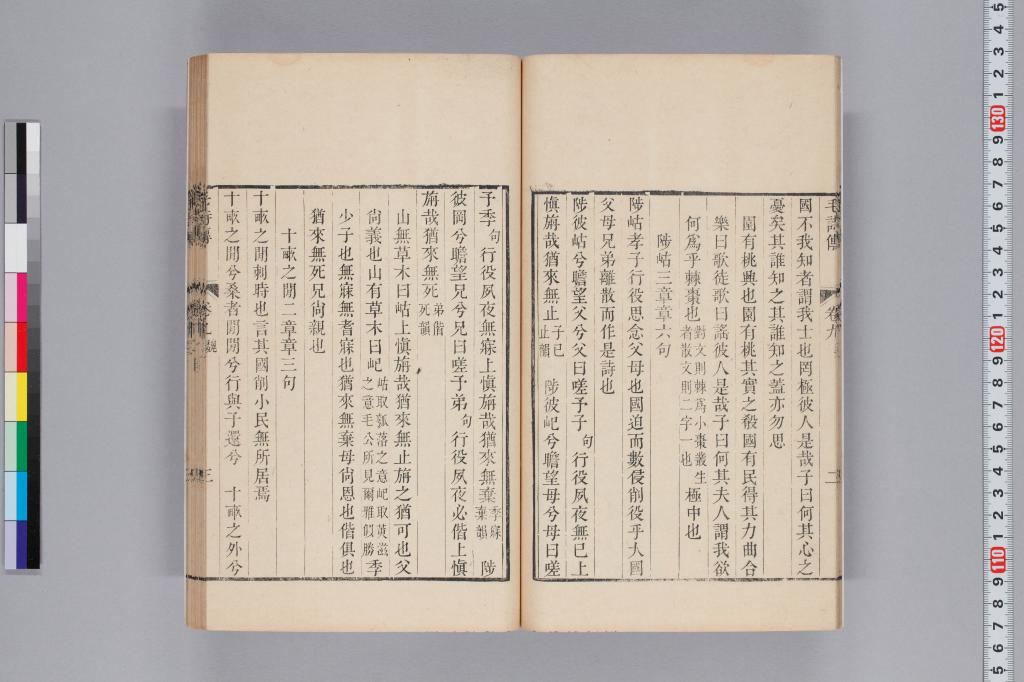 毛詩傳 卷九 二
國不我知者謂我士也罔極彼人是哉子曰何其心之
憂矣其誰知之其誰知之蓋亦勿思
園有桃興也園有桃其實之殽國有民得其力曲合
樂曰歌徒歌曰謠彼人是哉子曰何其夫人謂我欲
何爲乎棘棗也對文則棘爲小棗叢生者散文則二字一也極中也
陟岵三章章六句
陟岵孝子行役思念父母也國迫而數侵削役乎大國
父母兄弟離散而作是詩也
陟彼岵兮瞻望父兮父曰嗟予子句行役夙夜無已上
愼旃哉猶來無止子已止韻 陟彼屺兮瞻望母兮母曰嗟
予季句行役夙夜無寐上愼旃哉猶來無棄季寐棄韻 陟
彼岡兮瞻望兄兮兄曰嗟予弟句行役夙夜必偕上愼
旃哉猶來無死弟偕死韻
山無草木曰岵上愼旃哉猶來無止旃之猶可也父
尙義也山有草木曰屺岵取瓠落之意屺取黃滋之意毛公所見爾雅似勝季
少子也無寐無耆寐也猶來無棄母尙恩也偕俱也
猶來無死兄尙親也
十畝之閒二章章三句
十畝之閒刺時也言其國削小民無所居焉
十畝之閒兮桑者閑閑兮行與子還兮 十畝之外兮
卷九 魏 三